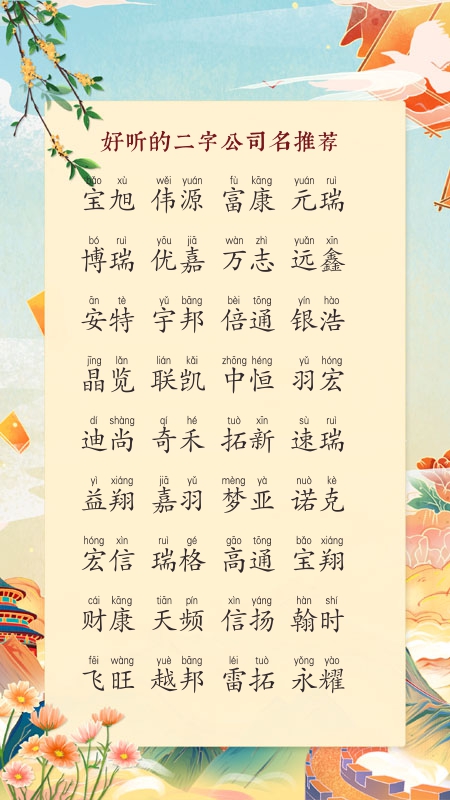 好听的二字公司名推荐
bǎo xù wěi yuán fù kāng yuán ruì
宝旭 伟源 富康 元瑞
bó ruì yōu jiā wàn zhì yuǎn xīn
博瑞 优嘉 万志 远鑫
ān tè yǔ bāng bèi tōng yín hào
安特 宇邦 倍通 银浩
jīng lǎn lián kǎi zhōng héng yǔ hóng
晶览 联凯 中恒 羽宏
dí shàng qí hé tuò xīn sù ruì
迪尚 奇禾 拓新 速瑞
yì xiáng jiā yǔ mèng yà nuò kè
益翔 嘉羽 梦亚 诺克
hóng xìn ruì gé gāo tōng bǎo xiáng
宏信 瑞格 高通 宝翔
cái kāng tiān pín xìn yáng hàn shí
财康 天频 信扬 翰时
fēi wàng yuè bāng léi tuò yǒng yào
飞旺 越邦 雷拓 永耀